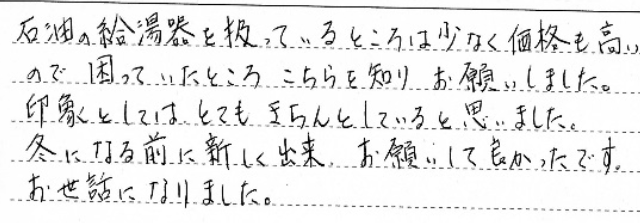 石油の給湯器を扱っているところは少なく価格も高い
ので困っていたところこちらを知りお願いしました。
印象としてはとてもきちんとしていると思いました。
冬になる前に新しく出来、お願いして良かったです。
お世話になりました。